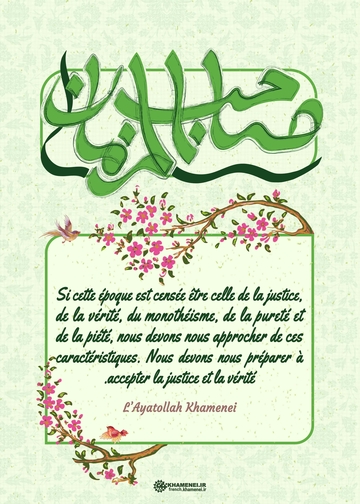 صاحب الزمان
Si cette époque est censée être celle de la justice,
de la vérité, du monothéisme, de la pureté et
de la piété, nous devons nous approcher de ces
caractéristiques. Nous devons nous préparer à
.accepter la justice et la vérité
L'Ayatollah Khamenei
KHAMENEI.IR
french.khamenei.ir